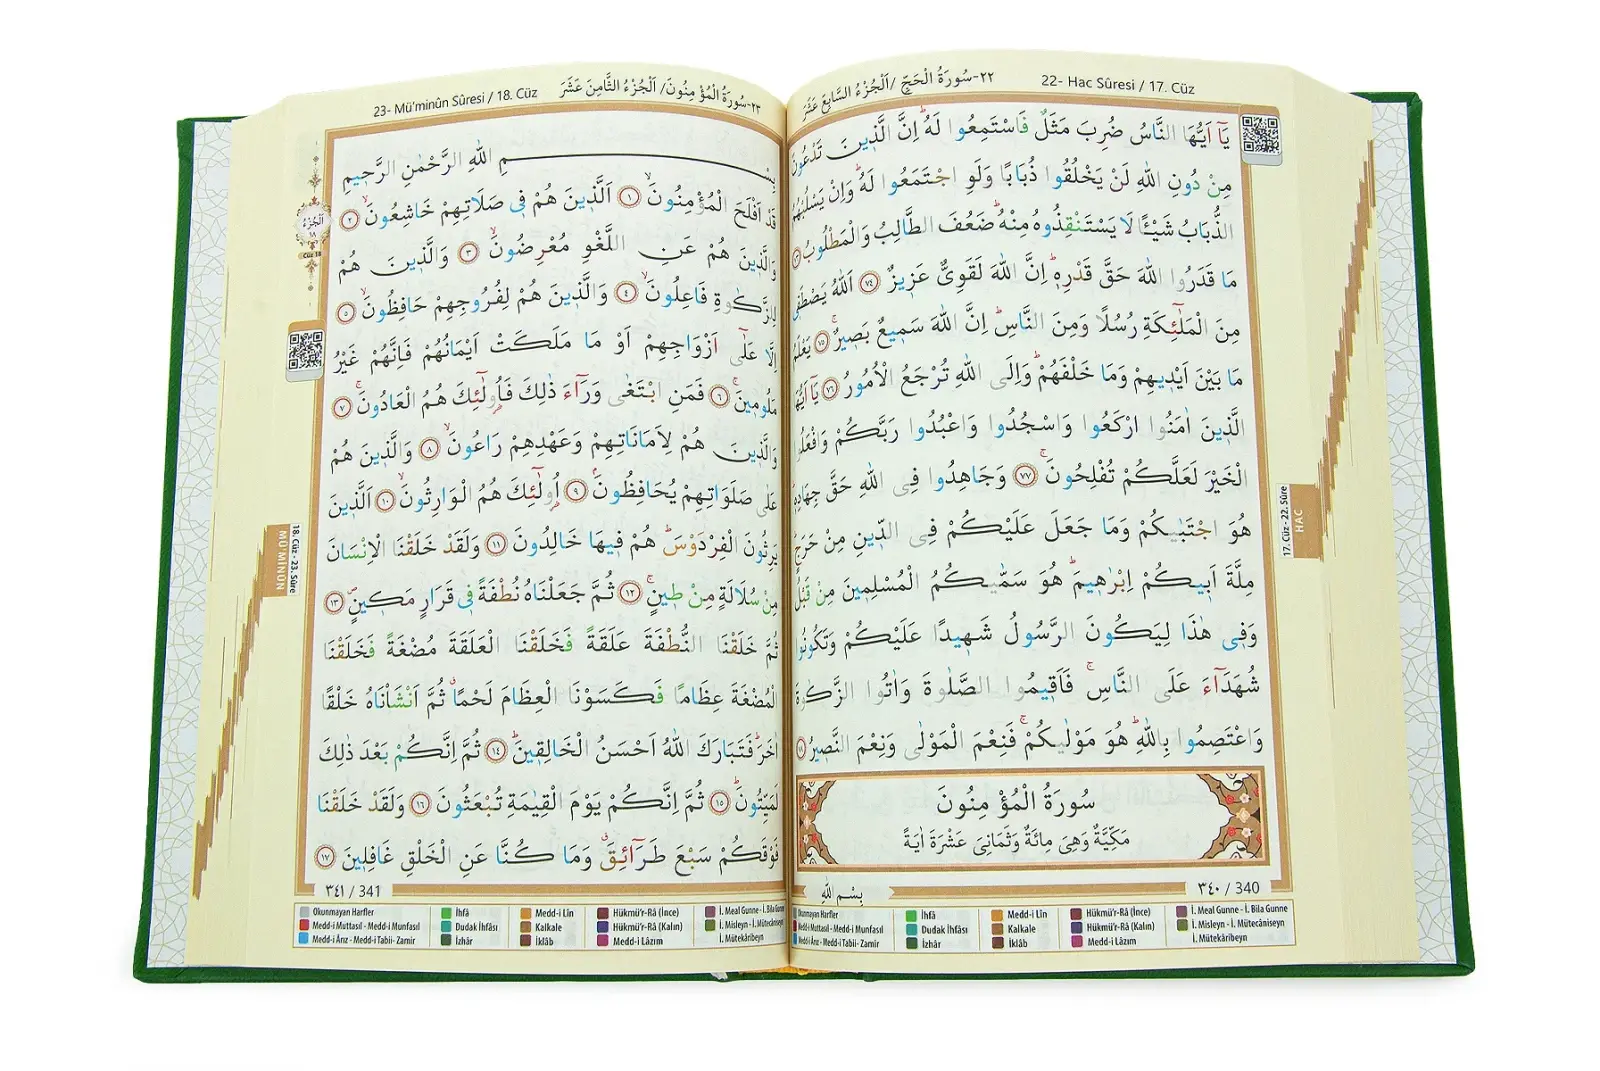 ٢٢-سُورَةُ الْحَجِّ /اَلْجُزْءُ السَّابِعَ عَشَرَ
22- Hac Sûresi / 17. Cüz
يَٓا اَيُّهَا النَّاسُ ضُرِبَ مَثَلٌ فَاسْتَمِعُوا لَهُۜ اِنَّ الَّذ۪ينَ تَدْعُونَ
مِنْ دُونِ اللّٰهِ لَنْ يَخْلُقُوا ذُبَابًا وَلَوِ اجْتَمَعُوا لَهُۜ وَاِنْ يَسْلُبْهُمُ
الذُّبَابُ شَيْـًٔا لَا يَسْتَنْقِذُوهُ مِنْهُۜ ضَعُفَ الطَّالِبُ وَالْمَطْلُوبُ ٧٣
مَا قَدَرُوا اللّٰهَ حَقَّ قَدْرِه۪ۜ اِنَّ اللّٰهَ لَقَوِيٌّ عَز۪يزٌ ٧٤ اَللّٰهُ يَصْطَف۪ي
مِنَ الْمَلٰٓئِكَةِ رُسُلًا وَمِنَ النَّاسِۜ اِنَّ اللّٰهَ سَم۪يعٌ بَص۪يرٌۚ ٧٥ يَعْلَمُ
مَا بَيْنَ اَيْد۪يهِمْ وَمَا خَلْفَهُمْۜ وَاِلَى اللّٰهِ تُرْجَعُ الْاُمُورُ ٧٦ يَٓا اَيُّهَا
الَّذ۪ينَ اٰمَنُوا ارْكَعُوا وَاسْجُدُوا وَاعْبُدُوا رَبَّكُمْ وَافْعَلُوا
الْخَيْرَ لَعَلَّكُمْ تُفْلِحُونَۚ ٧٧ وَجَاهِدُوا فِي اللّٰهِ حَقَّ جِهَادِه۪ۜ
هُوَ اجْتَبٰيكُمْ وَمَا جَعَلَ عَلَيْكُمْ فِي الدّ۪ينِ مِنْ حَرَجٍۜ
مِلَّةَ اَب۪يكُمْ اِبْرٰه۪يمَۜ هُوَ سَمّٰيكُمُ الْمُسْلِم۪ينَ مِنْ قَبْلُ
وَف۪ي هٰذَا لِيَكُونَ الرَّسُولُ شَه۪يدًا عَلَيْكُمْ وَتَكُونُوا
شُهَدَٓاءَ عَلَى النَّاسِۚ فَاَق۪يمُوا الصَّلٰوةَ وَاٰتُوا الزَّكٰوةَ
وَاعْتَصِمُوا بِاللّٰهِۜ هُوَ مَوْلٰيكُمْۚ فَنِعْمَ الْمَوْلٰى وَنِعْمَ النَّص۪يرُ ٧٨
سُورَةُ الْمُؤْمِنُونَ
مَكِّيَّةٌ وَهِيَ مِائَةٌ وَثَمَانِيَ عَشْرَةَ اٰيَةً
٣٤٠ / 340
بِسْمِ اللّٰهِ
17. Cüz - 22. Sûre
HAC
Okunmayan Harfler
Medd-i Muttasıl - Medd-i Munfasıl
Medd-i Ârız - Medd-i Tabii- Zamir
İhfâ
Dudak İhfâsı
İzhâr
Medd-i Lîn
Kalkale
İklâb
Hükmü'r-Râ (İnce)
Hükmü'r-Râ (Kalın)
Medd-i Lâzım
İ. Meal Gunne - İ. Bila Gunne
İ. Misleyn - İ. Mütecâniseyn
İ. Mütekâribeyn
٢٣-سُورَةُ الْمُؤْمِنُونَ/ اَلْجُزْءُ الثَّامِنَ عَشَرَ
23- Mü'minûn Sûresi / 18. Cüz
بِسْمِ اللّٰهِ الرَّحْمٰنِ الرَّح۪يمِ
قَدْ اَفْلَحَ الْمُؤْمِنُونَۙ ١ اَلَّذ۪ينَ هُمْ ف۪ي صَلَاتِهِمْ خَاشِعُونَۙ ٢
وَالَّذ۪ينَ هُمْ عَنِ اللَّغْوِ مُعْرِضُونَۙ ٣ وَالَّذ۪ينَ هُمْ
لِلزَّكٰوةِ فَاعِلُونَۙ ٤ وَالَّذ۪ينَ هُمْ لِفُرُوجِهِمْ حَافِظُونَۙ ٥
اِلَّا عَلٰٓى اَزْوَاجِهِمْ اَوْ مَا مَلَكَتْ اَيْمَانُهُمْ فَاِنَّهُمْ غَيْرُ
مَلُوم۪ينَۚ ٦ فَمَنِ ابْتَغٰى وَرَٓاءَ ذٰلِكَ فَاُو۬لٰٓئِكَ هُمُ الْعَادُونَۚ ٧
وَالَّذ۪ينَ هُمْ لِاَمَانَاتِهِمْ وَعَهْدِهِمْ رَاعُونَۙ ٨ وَالَّذ۪ينَ هُمْ
عَلٰى صَلَوَاتِهِمْ يُحَافِظُونَۢ ٩ اُو۬لٰٓئِكَ هُمُ الْوَارِثُونَۙ ١٠ اَلَّذ۪ينَ
يَرِثُونَ الْفِرْدَوْسَۜ هُمْ ف۪يهَا خَالِدُونَ ١١ وَلَقَدْ خَلَقْنَا الْاِنْسَانَ
مِنْ سُلَالَةٍ مِنْ ط۪ينٍۚ ١٢ ثُمَّ جَعَلْنَاهُ نُطْفَةً ف۪ي قَرَارٍ مَك۪ينٍۖ ١٣
ثُمَّ خَلَقْنَا النُّطْفَةَ عَلَقَةً فَخَلَقْنَا الْعَلَقَةَ مُضْغَةً فَخَلَقْنَا
الْمُضْغَةَ عِظَامًا فَكَسَوْنَا الْعِظَامَ لَحْمًاۗ ثُمَّ اَنْشَأْنَاهُ خَلْقًا
اٰخَرَۜ فَتَبَارَكَ اللّٰهُ اَحْسَنُ الْخَالِق۪ينَۜ ١٤ ثُمَّ اِنَّكُمْ بَعْدَ ذٰلِكَ
لَمَيِّتُونَۜ ١٥ ثُمَّ اِنَّكُمْ يَوْمَ الْقِيٰمَةِ تُبْعَثُونَ ١٦ وَلَقَدْ خَلَقْنَا
فَوْقَكُمْ سَبْعَ طَرَٓائِقَۗ وَمَا كُنَّا عَنِ الْخَلْقِ غَافِل۪ينَ ١٧
اَلْجُزْءُ
١٨
Cüz 18
18. Cüz - 23. Sûre
MÜ'MİNÛN
٣٤١ / 341
Okunmayan Harfler
Medd-i Muttasıl - Medd-i Munfasıl
Medd-i Ârız - Medd-i Tabii- Zamir
İhfâ
Dudak İhfâsı
İzhâr
Medd-i Lîn
Kalkale
İklâb
Hükmü'r-Râ (İnce)
Hükmü'r-Râ (Kalın)
Medd-i Lâzım
İ. Meal Gunne - İ. Bila Gunne
İ. Misleyn - İ. Mütecâniseyn
İ. Mütekâribeyn